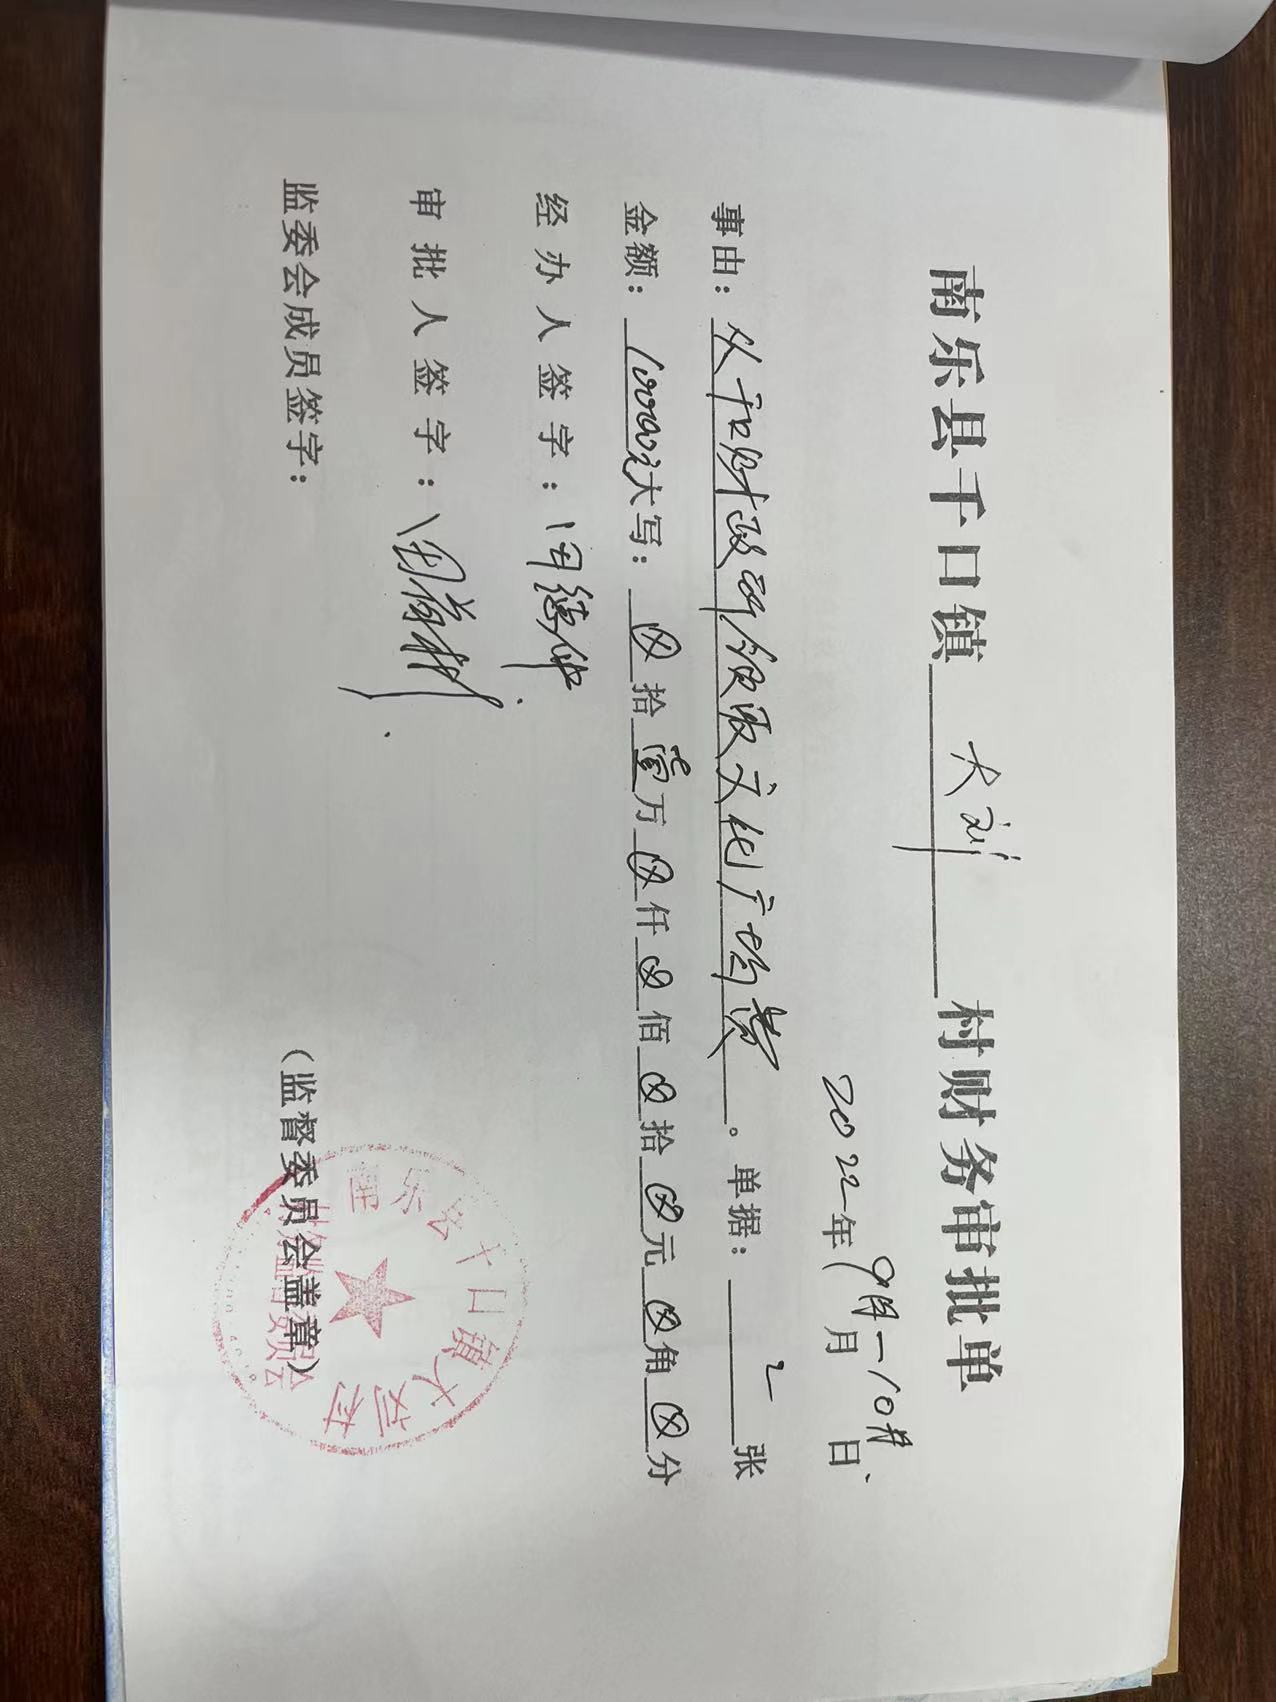 南乐县千口镇 大刘 村财务审批单
2022年9月月—10月日
事由：从千口财政所领取文化广场款。单据：2张
金额：10000元大写：⊗拾壹万⊗仟⊗佰⊗拾⊗元⊗角⊗分
经办人签字：
审批人签字：
监委会成员签字：
（监督委员会盖章）
南乐县千口镇大刘村
村务监督委员会